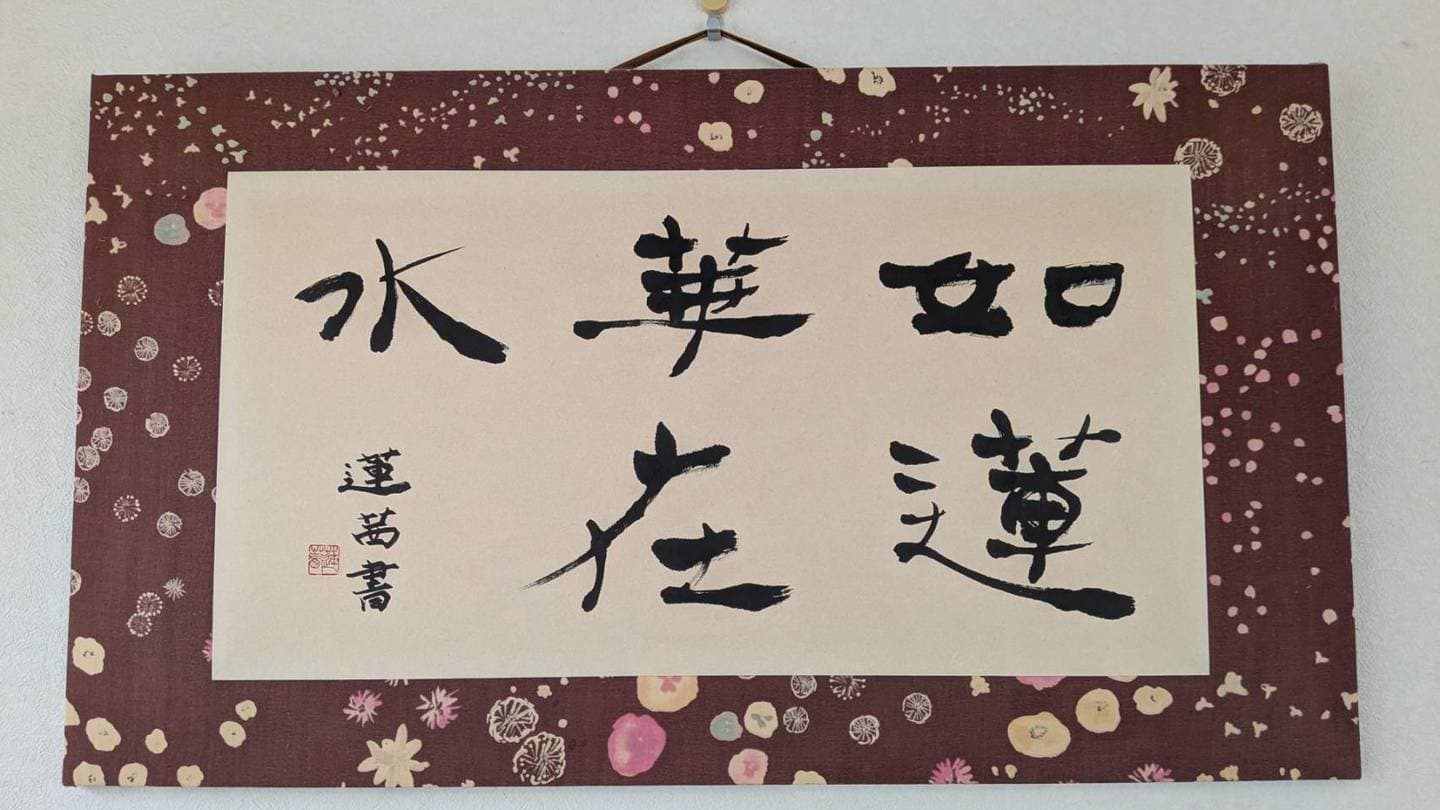 如蓮
華在
水
蓮茜書